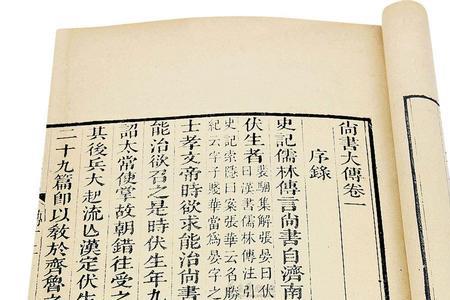 尚書大傳卷一
序錄
史記儒林傳言尚書自濟南
伏生者
裴駰集解張晏曰伏
曰漢書儒林傳注引
史記索隱曰案張華云名勝
紀云字子賤華當爲晏字之
士孝文帝時欲求能治尚書
能治欲召之是時伏生年九
詔太常使掌故朝錯往受之
其後兵大起流亾漢定伏生
二十九篇即以敎於齊魯之